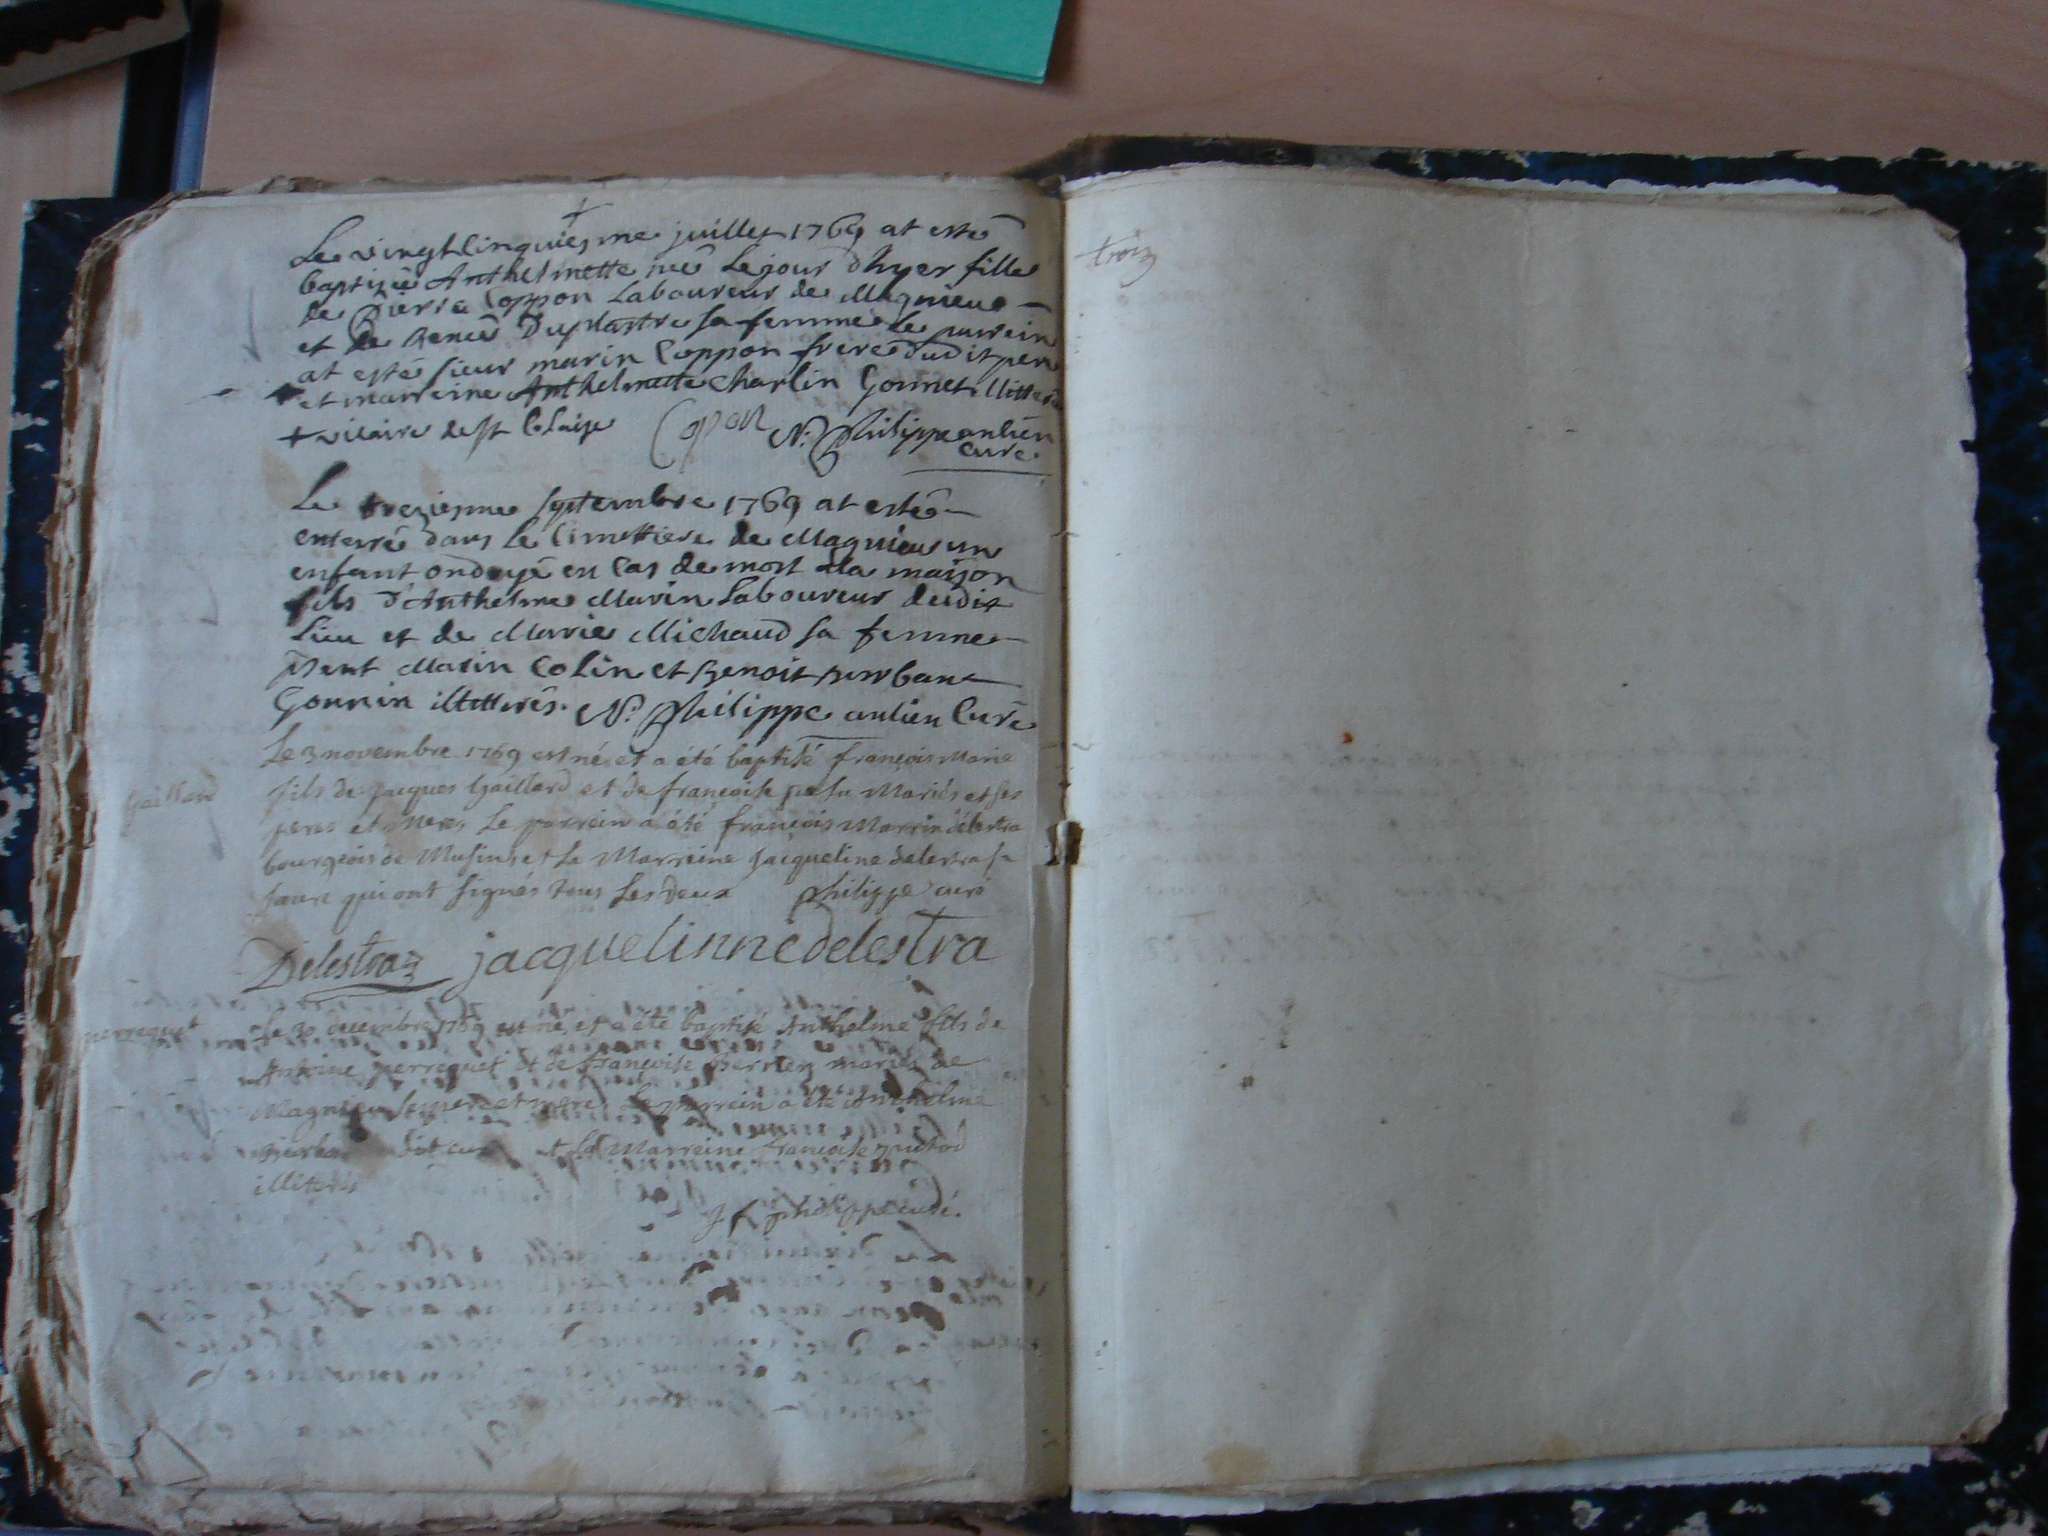 Le vingt cinquiesme juillet 1769 at esté
baptizée Anthelmette née le jour dhyer fille
de Pierre Coppon Laboureur de Magnieu
et de Duplastre sa femme le parrein
at esté sieur marin Coppon frere dudit pere
et marreine Anthelmette Charlin Gonnet
+ vicaire de st Blaise Copon N. Philippe ancien
curé
Le treziesme septembre 1769 at esté
enterré dans le Cimettiere de Magnieu un
enfant ondoyé en Cas de mort ala maison
fils d'Anthelme Marin Laboureur dudit
Lieu et de Marie Michaud sa femme
Marin Colin et Benoit
Gonnin illitterés. N. Philippe ancien Curé
Gaillard
Le 3 novembre 1769 est né et a été baptisé françois Marie
fils de jacques Gaillard et de francoise Mariés et ses
peres et Meres Le parrein a été françois Marrin délestra
bourgeois de Musin et La Marreine jacqueline delestra sa
qui ont signés tous Les deux philippe curé
Delestraz jacquelinne delestra
perrequet
Le 30 decembre 1769 est né et a été baptisé Anthelme fils de
Antoine perrequet et de françoise mariés de
Magnieu ses pere et mere Le parrein a été Anthelme
et La Marreine francoise
illiterés
j f philippe curé.
trois